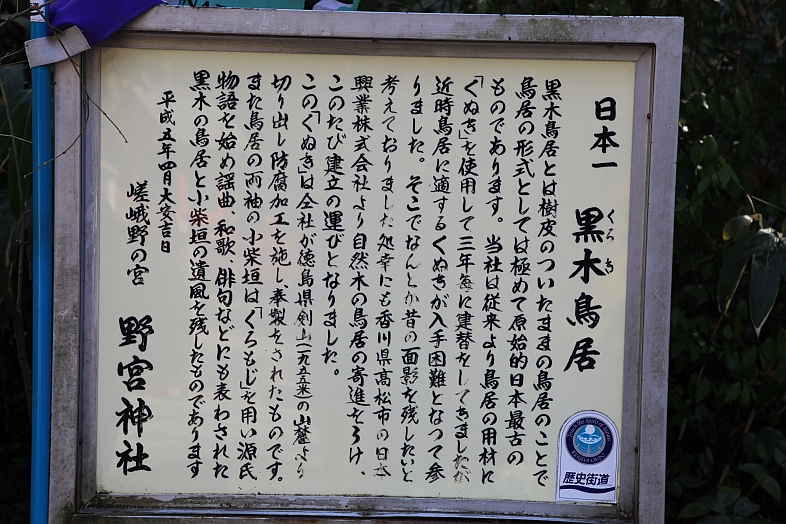 日本一 黒木鳥居
くろき
黒木鳥居とは樹皮のついたままの鳥居のことで
鳥居の形式としては極めて原始的日本最古の
ものであります。当社は従来より鳥居の用材に
「くぬぎ」を使用して三年毎に建替をしてきましたが
近時鳥居に適するくぬぎが入手困難となつて参
りました。そこでなんとか昔の面影を残したいと
考えておりました処幸にも香川県高松市の日本
興業株式会社より自然木の鳥居の寄進をうけ、
このたび建立の運びとなりました。
この「くぬぎ」は仝社が徳島県剣山(一九五五米)の山麓より
切り出し防腐加工を施し、奉製をされたものです。
また鳥居の両袖の小柴垣は「くろもじ」を用い源氏
物語を始め謡曲、和歌、俳句などにも表わされた
黒木の鳥居と小柴垣の遺風を残したものであります
平成五年四月大安吉日
嵯峨野の宮 野宮神社
歴史街道